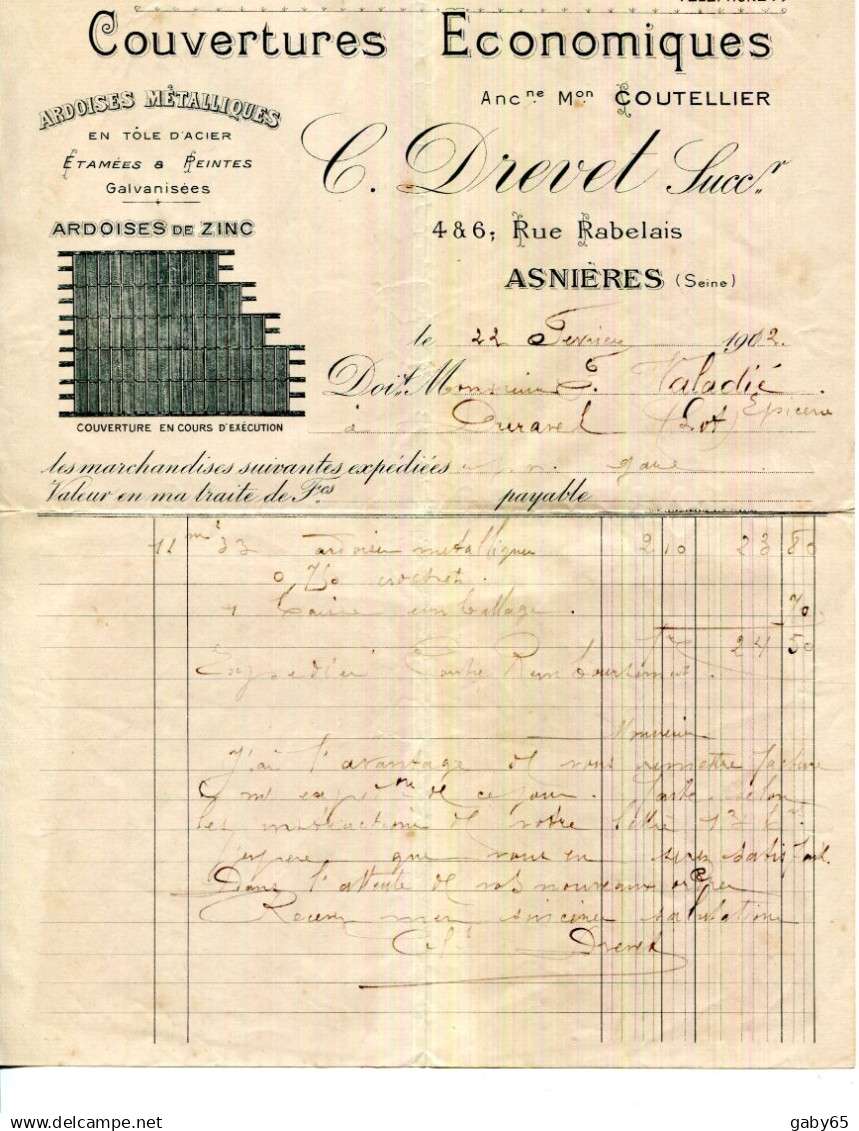 Couvertures Economiques
ARDOISES MÉTALLIQUES
EN TÔLE D'ACIER
ETAMÉES & PEINTES
Galvanisées
ARDOISES DE ZINC
COUVERTURE EN COURS D'EXÉCUTION
Ancne Mon COUTELLIER
C. Drevet Succr
4 & 6, Rue Rabelais
ASNIÈRES (Seine)
le 22 Fevrier 1902.
Doit Monsieur Valadié
à Duravel (Lot) Epicerie
les marchandises suivantes expédiées gare
Valeur en ma traite de Fcs payable
11 m2 33 ardoises metalliques 2 10 23 80
0,750 crochets.
1 Caisse emballage. 70
24 50
Expedié Contre Remboursement.
Monsieur
J'ai l'avantage de vous remettre facture
de ce jour. faite selon
les instructions de votre lettre
J'espere que vous en serez satisfait.
Dans l'attente de vos nouveaux ordres
Recevez mes sinceres salutations
Drevet
gaby65